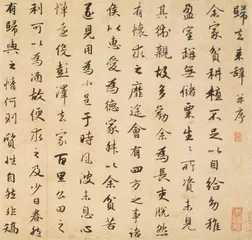 歸去來辭 并序
余家貧耕植不足以自給幼稚
盈室缾無儲粟生生所資未見
其術親故多勸余為長吏脫然
有懷求之靡途會有四方之事諸
侯以惠愛為德家叔以余貧苦
遂見用為小邑于時風波未息心
憚遠役彭澤去家百里公田之
利可以為酒故便求之及少日眷然
有歸與之情何則質性自然非矯